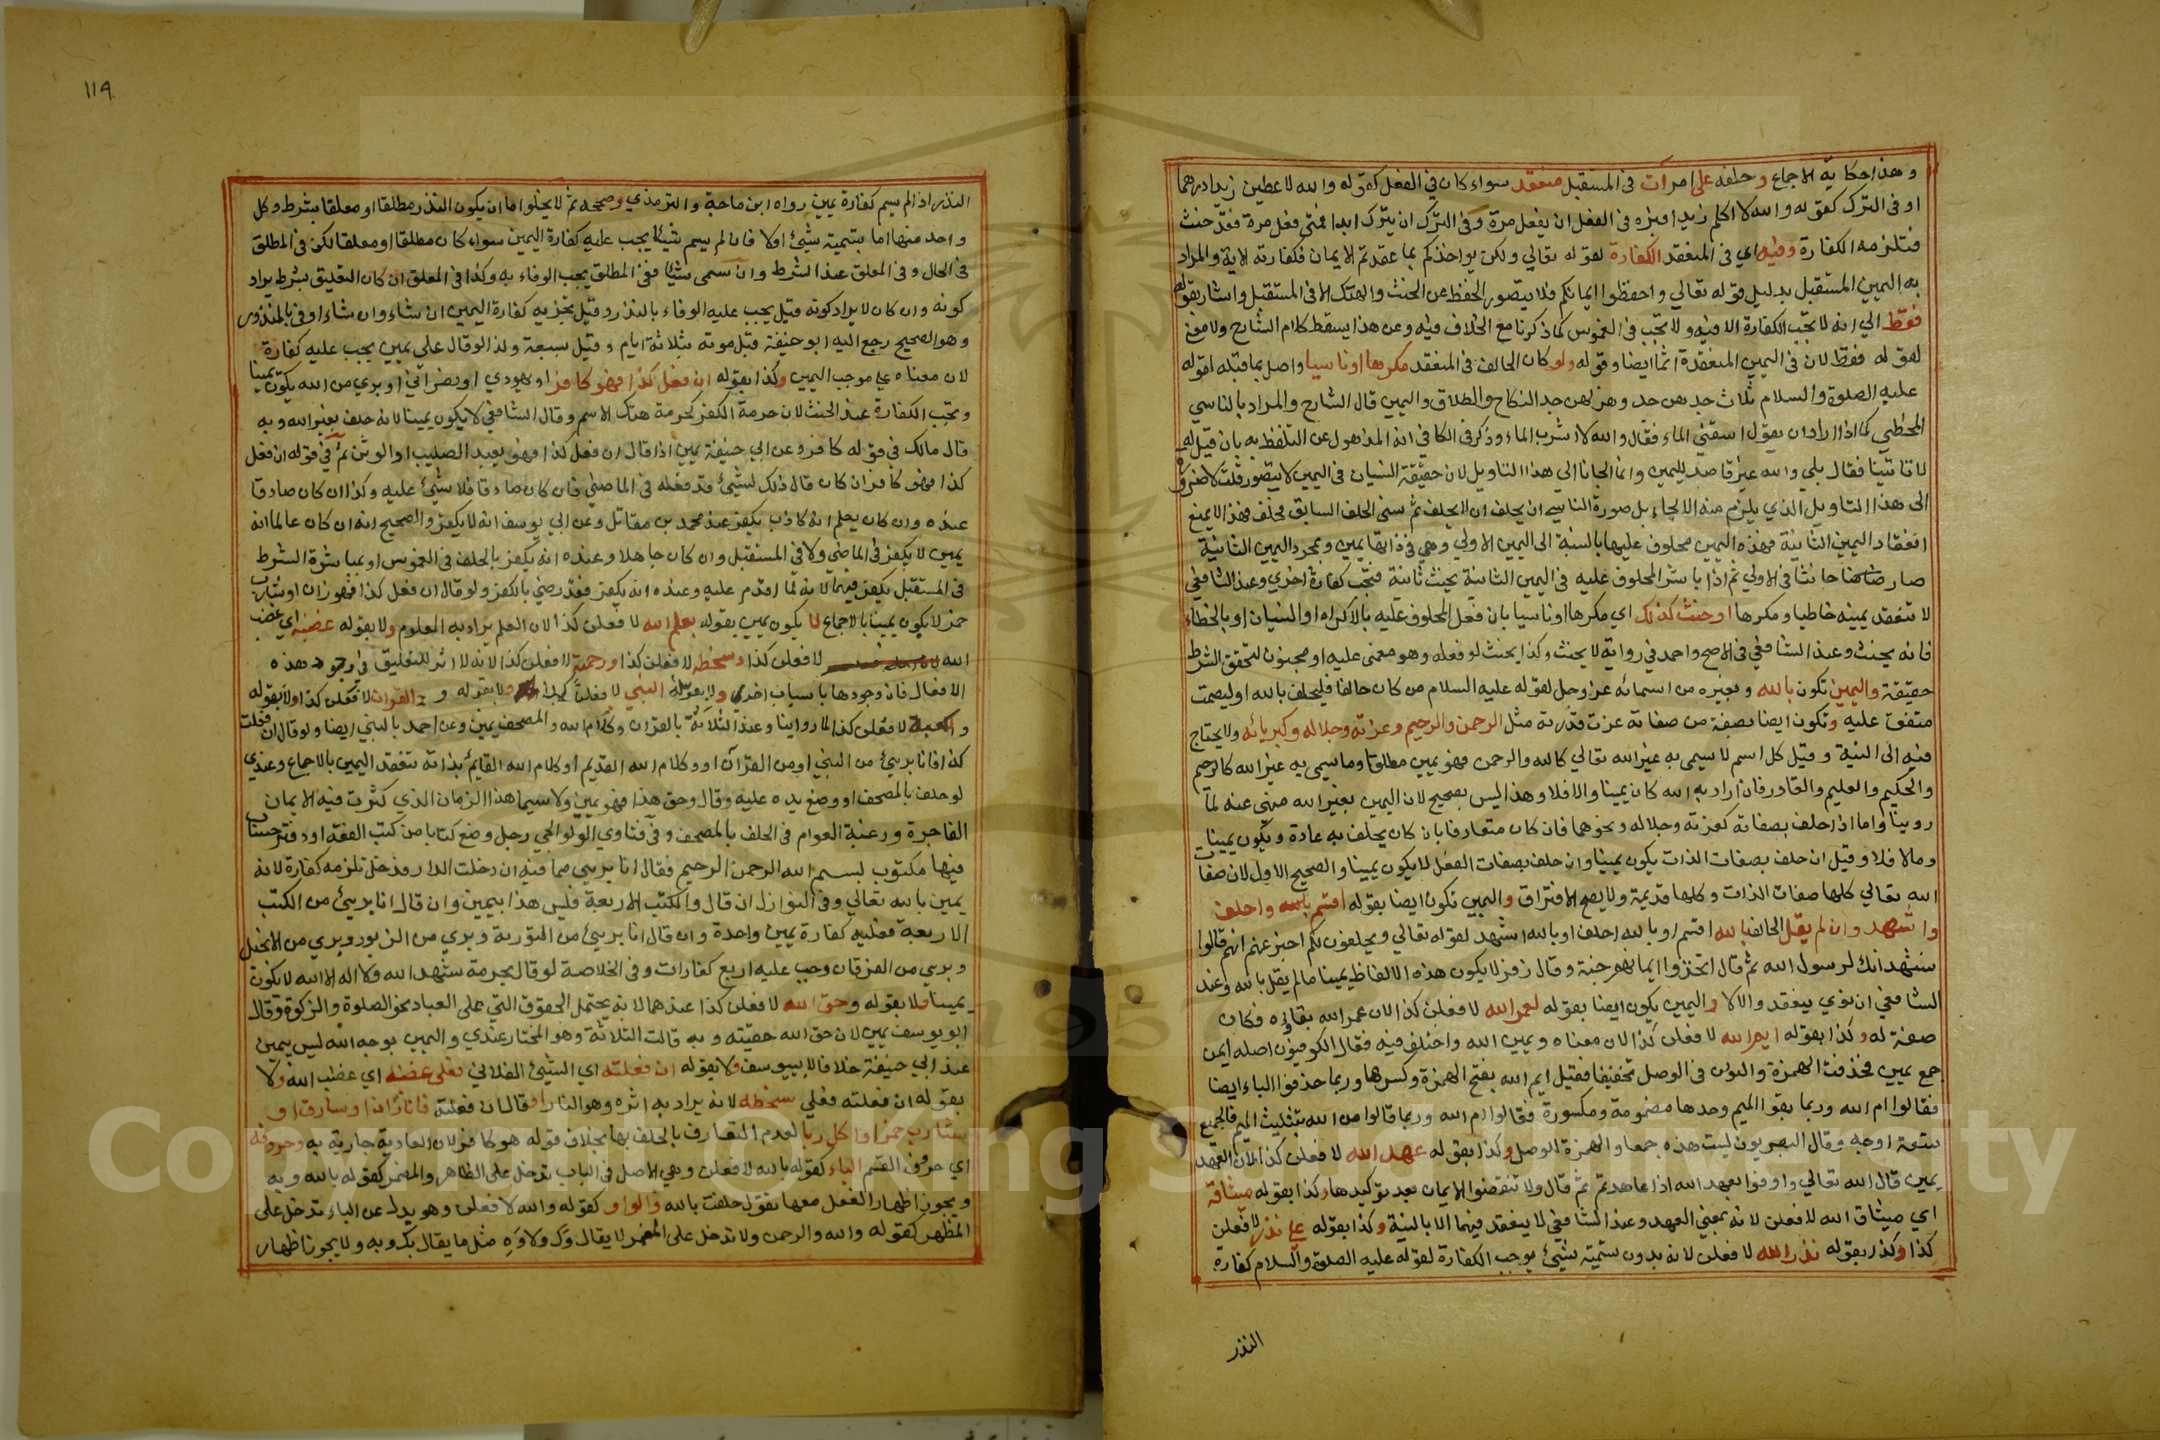 وهذا حكاية الاجماع وحلفه على امرات في المستقبل منعقد سواء كان في الفعل كقوله والله لاعطين زيدا درهما
او في الترك كقوله والله لا اكلم زيدا فبره في الفعل ان يفعل مرة وفي الترك ان يترك ابدا فمتى فعل مرة فقد حنث
فتلزمه الكفارة وفيه اي في المنعقد الكفارة لقوله تعالي ولكن يواخذكم بما عقدتم الايمان فكفارته الاية والمراد
به اليمين المستقبل بدليل قوله تعالي واحفظوا ايمانكم فلا يتصور الحفظ عن الحنث والهتك الا في المستقبل واشار بقوله
فقط الي انه لا تجب الكفارة الا فيه ولا تجب في الغموس كما ذكرنا مع الخلاف فيه وعن هذا يسقط كلام الشارح ولا معنى
لقوله فقط لان في اليمين المنعقدة اثما ايضا وقوله ولو كان الحالف في المنعقد مكرها او ناسيا واصل بما قبله لقوله
عليه الصلوة والسلام ثلاث جدهن جد وهزلهن جد النكاح والطلاق واليمين قال الشارح والمراد بالناسي
المخطي كما اذا اراد ان يقول اسقني الماء فقال والله لا اشرب الماء وذكر في الكافي انه المذهول عن التلفظ به بان قيل له
لا تاتينا فقال بلي والله غير قاصد لليمين وانما الجانا الي هذا التاويل لان حقيقة النسيان في اليمين لا يتصور قلت لا ضرورة
الى هذا التاويل الذي يلزم منه الالجاء بل صورة الناسي ان يحلف ان لا يحلف ثم نسى الحلف السابق فحلف فهذا لا يمنع
انعقاد اليمين الثانية فهذه اليمين محلوف عليها بالنسبة الى اليمين الاولي وهي في ذاتها يمين وبمجرد اليمين الثانية
صار حانثا في الاولي ثم اذا باشر المحلوف عليه في اليمين الثانية يحنث ثانية فتجب كفارة اخري وعند الشافعي
لا تنعقد يمينه خاطيا ومكرها او حنث كذلك اي مكرها او ناسيا بان فعل المحلوف عليه بالاكراه او النسيان او بالخطاء
فانه يحنث وعند الشافعي في الاصح واحمد في رواية لا يحنث وكذا يحنث لو فعله وهو مغمى عليه او مجنون لتحقق الشرط
حقيقة واليمين تكون بالله وبغيره من اسمائه عز وجل لقوله عليه السلام من كان حالفا فليحلف بالله او ليصمت
متفق عليه وتكون ايضا بصفة من صفاته عزت قدرته مثل الرحمن والرحيم وعزته وجلاله وكبريائه ولا يحتاج
فيه الى النية وقيل كل اسم لا يسمى به غير الله تعالي كالله والرحمن فهو يمين مطلقا وما يسمى به غير الله كالرحيم
والحكيم والعليم والقادر فان اراد به الله كان يمينا والا فلا وهذا ليس بصحيح لان اليمين بغير الله منهي عنه لما
روينا واما اذا حلف بصفاته كعزته وجلاله ونحوهما فان كان متعارفا بان كان يحلف به عادة ويكون يمينا
ومالا فلا وقيل ان حلف بصفات الذات يكون يمينا وان حلف بصفات الفعل لا يكون يمينا والصحيح الاول لان صفات
الله تعالي كلها صفات الذات وكلها قديمة ولا يصح الافتراق واليمين تكون ايضا بقوله اقسم بالله واحلف
واشهد وان لم يقل الحالف بالله اقسم او بالله احلف او بالله اشهد لقوله تعالي ويحلفون لكم اخبر عنهم انهم قالوا
نشهد انك لرسول الله ثم قال اتخذوا ايمانهم جنة وقال زفر لا يكون هذه الالفاظ يمينا مالم يقل بالله وعند
الشافعي ان نوي ينعقد والا لا واليمين يكون ايضا بقوله لعمر الله لا فعلن كذا لان عمر الله بقاؤه فكان
صفة له وكذا بقوله ايم الله لا فعلن كذا لان معناه ويمين الله واختلف فيه فقال الكوفيون اصله ايمن
جمع يمين فحذفت الهمزة والنون في الوصل تخفيفا فقيل ايم الله بفتح الهمزة وكسرها وربما حذفوا الياء ايضا
فقالوا ام الله وربما بقوا الميم وحدها مضمومة ومكسورة فقالوا م الله وربما قالوا من الله بتثليث الميم فالجميع
ستعة اوجه وقال البصريون ليست هذه جمعا والهمزة للوصل وكذا بقوله عهد الله لا فعلن كذا لان العهد
يمين قال الله تعالي واوفوا بعهد الله اذا عاهدتم ثم قال ولا تنقضوا الايمان بعد توكيدها وكذا بقوله ميثاقه
اي ميثاق الله لا فعلن لانه بمعني العهد وعند الشافعي لا ينعقد فيهما الا بالنية وكذا بقوله علي نذر لا فعلن
كذا وكذا بقوله نذر الله لا فعلن لانه بدون تسمية شيئ يوجب الكفارة لقوله عليه الصلوة والسلام كفارة
النذر
١١٩
النذر اذا لم يسم كفارة يمين رواه ابن ماجة والترمذي وصححه ثم لا يخلوا اما ان يكون النذر مطلقا او معلقا بشرط وكل
واحد منهما اما بتسمية شيئ اولا فان لم يسم شيئا يجب عليه كفارة اليمين سواء كان مطلقا او معلقا لكن في المطلق
في الحال وفي المعلق عند الشرط وان سمى شيئا ففي المطلق يجب الوفاء به وكذا في المعلق ان كان التعليق بشرط يراد
كونه وان كان لا يراد كونه قيل يجب عليه الوفاء بالنذر وقيل تجزيه كفارة اليمين ان شاء وان شاء اوفى بالمنذور
وهو الصحيح رجع اليه ابو حنيفة قبل موته بثلاثة ايام وقيل سبعة ولذا لو قال علي يمين يجب عليه كفارة
لان معناه علي موجب اليمين وكذا بقوله ان فعل كذا فهو كافر او يهودي او نصراني او بري من الله يكون يمينا
وتجب الكفارة عند الحنث لان حرمة الكفر كحرمة هتك الاسم وقال الشافعي لا يكون يمينا لانه حلف بغير الله وبه
قال مالك في قوله كافر وعن ابي حنيفة يمين اذا قال ان فعل كذا فهو يعبد الصليب او الوثن ثم في قوله ان فعل
كذا فهو كافر ان كان قال ذلك لشيئ قد فعله في الماضي فان كان صادقا فلا شيئ عليه وكذا ان كان صادقا
عنده وان كان يعلم انه كاذب يكفر عند محمد بن مقاتل وعن ابي يوسف انه لا يكفر والصحيح انه ان كان عالما انه
يمين لا يكفر في الماضي ولا في المستقبل وان كان جاهلا وعنده انه يكفر بالحلف في الغموس او بمباشرة الشرط
في المستقبل يكفر فيهما لانه لما اقدم عليه وعنده انه يكفر فقد رضي بالكفر ولو قال ان فعل كذا فهو زان او شارب
خمر لا يكون يمينا بالاجماع لا يكون يمين بقوله بعلم الله لا فعلن كذا لان العلم يراد به المعلوم ولا بقوله غضبه اي غضب
الله لا فعلن كذا وسخطه لا فعلن كذا ورحمة لا فعلن كذا لانه لا اثر للتعليق في وجود هذه
الافعال فان وجودها باسباب اخري ولا بقوله النبي لا فعلن كذا ولا بقوله والقران لا فعلن كذا ولا بقوله
والكعبة لا فعلن كذا لما روينا وعند الثلاثة بالقران وكلام الله والمصحف يمين وعن احمد بالنبي ايضا ولو قال ان فعلت
كذا فانا بريئ من النبي او من القرآن او وكلام الله القديم او كلام الله القائم بذاته تنعقد اليمين بالاجماع وعندي
لو حلف بالمصحف او وضع يده عليه وقال وحق هذا فهو يمين ولا سيما هذا الزمان الذي كثرت فيه الايمان
الفاجرة ورغبة العوام في الحلف بالمصحف وفي فتاوي الولوالجي رجل وضع كتابا من كتب الفقه او دفتر حساب
فيها مكتوب بسم الله الرحمن الرحيم فقال انا بريئ مما فيه ان دخلت الدار فدخل تلزمه كفارة لانه
يمين بالله تعالي وفي النوازل ان قال والكتب الاربعة فليس هذا بيمين وان قال انا بريئ من الكتب
الاربعة فعليه كفارة يمين واحدة وان قال انا بريئ من التورية وبري من الزبور وبري من الانجيل
وبري من الفرقان وجب عليه اربع كفارات وفي الخلاصة لو قال بحرمة شهد الله ولا اله الا الله لا تكون
يمينا ولا بقوله وحق الله لا فعلن كذا عندهما لانه يحتمل الحقوق التي على العباد نحو الصلوة والزكوة وقال
ابو يوسف يمين لان حق الله حقيته وبه قالت الثلاثة وهو المختار عندي واليمين بوجه الله ليس بيمين
عند ابي حنيفة خلافا لابييوسف ولا بقوله ان فعلته اي الشيئ الفلاني فعلى غضبه اي غضب الله ولا
بقوله ان فعلته فعلي سخطه لانه يراد به اثره وهو النار او قال ان فعلته فانا زان او سارق او
شارب خمر او اكل ربا لعدم التعارف بالحلف بها بخلاف قوله هو كافر لان العادية جارية به وحروفه
اي حروف القسم الباء كقوله بالله لا فعلن وهي الاصل في الباب تدخل على الظاهر والمضمر كقوله بالله وبه
ويجوز اظهار الفعل معها بقوله حلفت بالله والواو كقوله والله لا فعلن وهو بدل عن الباء تدخل على
المظهر كقوله والله والرحمن ولا تدخل على المضمر لا يقال وك ولا وه مثل ما يقال بك وبه ولا يجوز اظهار